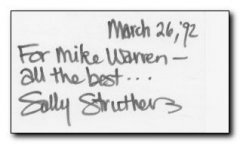 March 26, '92
For Mike Warren –
all the best...
Sally Struthers